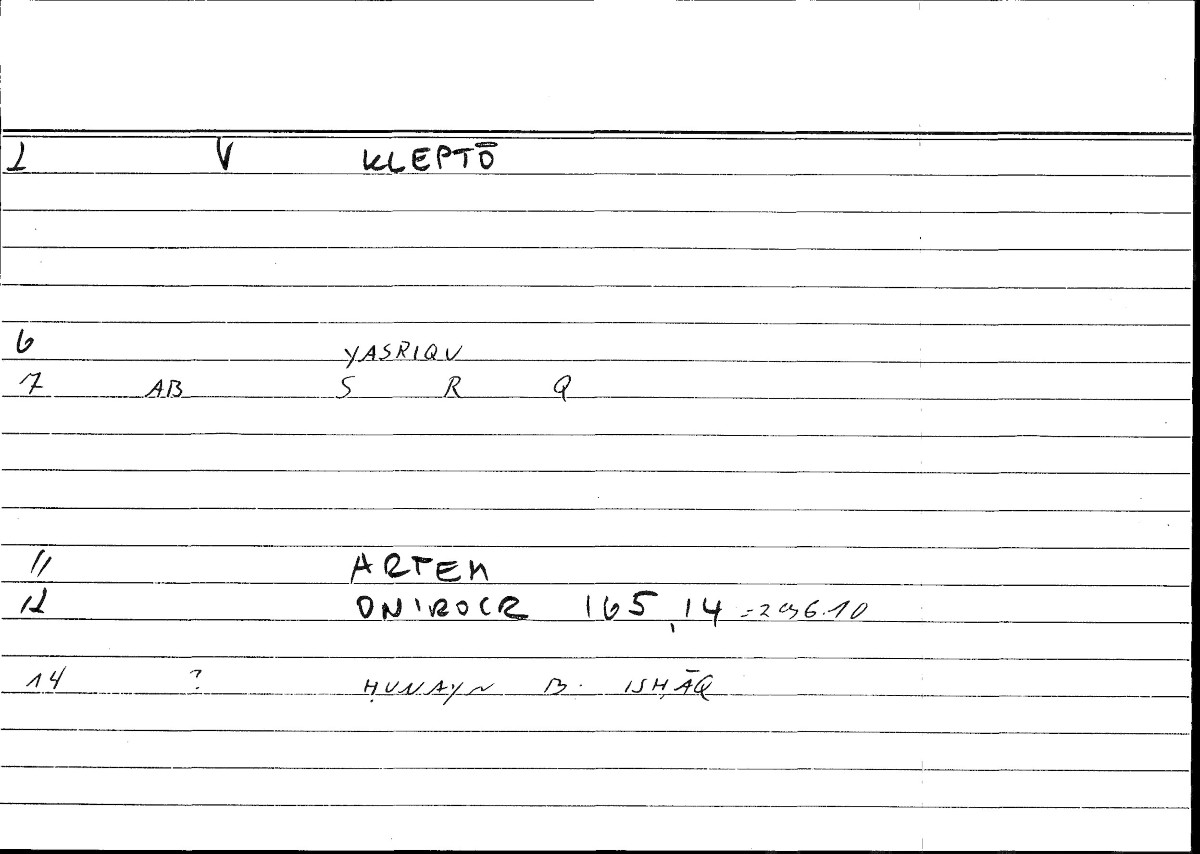 1 V KLEPTŌ
6 YASRIQU
7 AB S R Q
11 ARTEM
12 ONIROCR 165,14 = 296.10
14 ? ḤUNAYN B. ISḤĀQ